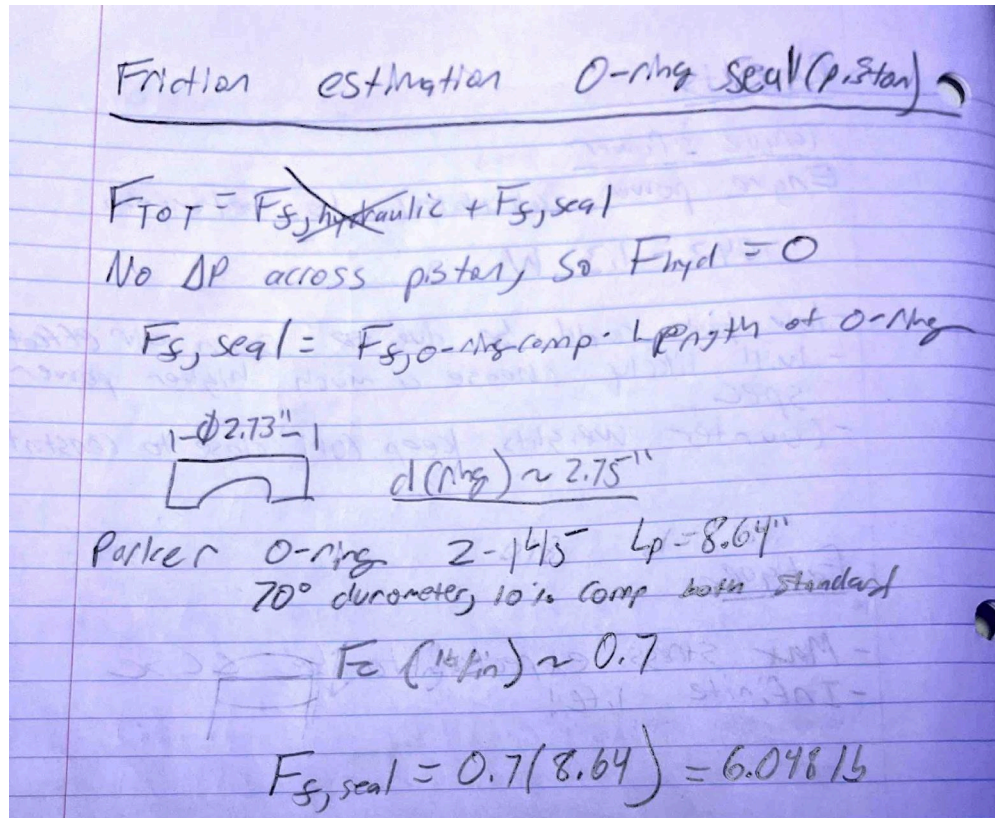 Friction estimation O-ring seal (piston)
F_TOT = F_f,hydraulic + F_f,seal
No ΔP across piston, so F_hyd = 0
F_f,seal = F_f,o-ring comp · Length of O-ring
|-Ø2.73"-|
d(ring) ~ 2.75"
Parker O-ring 2-145 Lp = 8.64"
70° durometer, 10% comp both standard
F_c (lb/in) ~ 0.7
F_f,seal = 0.7(8.64) = 6.048 lb